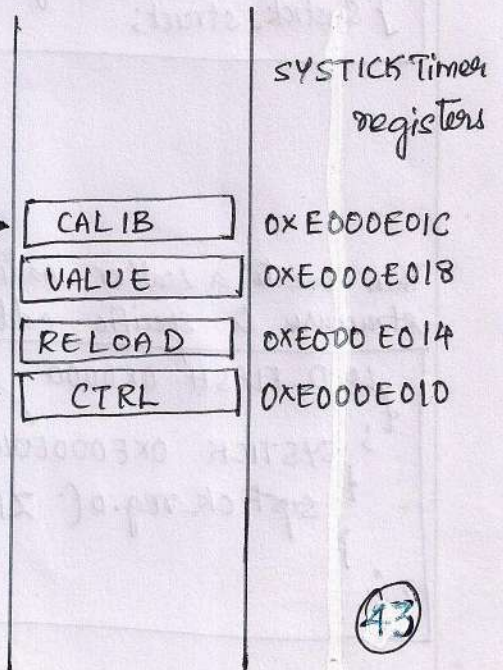 SYSTICK Timer
registers
CALIB 0XE000E01C
VALUE 0XE000E018
RELOAD 0XE000E014
CTRL 0XE000E010
43